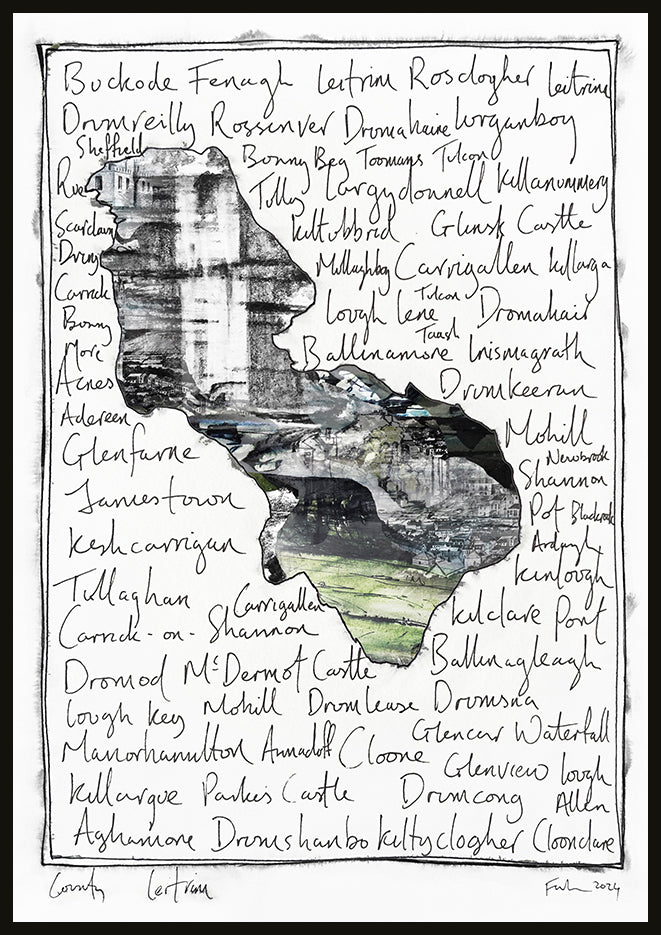 Buckode Fenagh Leitrim Rosclogher Leitrim
Drumreilly Rossinver Dromahaire Lurganboy
Sheffield Bonny Beg Toomans Tulcon
Tully Largydonnell Killanummery
Scardaun Kiltubbrid Glinsk Castle
Mullaghboy Carrigallen Killarga
Carrick Lough Lene Tulcon Dromahair
Bonny Ballinamore Taash Inismagrath
More
Acres Drumkeeran
Adereen Mohill
Glenfarne Newbrook
Shannon
Jamestown Pot Blackrock
Keshcarrigan Kinlough
Tullaghan Carrigallen Kilclare Port
Carrick-on-Shannon
Dromod McDermot Castle Ballinagleagh
Lough Key Mohill Drumlease Drumsna
Glencar Waterfall
Manorhamilton Annaduff Cloone
Glenview Lough
Killargue Parkes Castle Drumcong Allen
Aghamore Drumshanbo Kiltyclogher Cloonclare
County Leitrim 2024